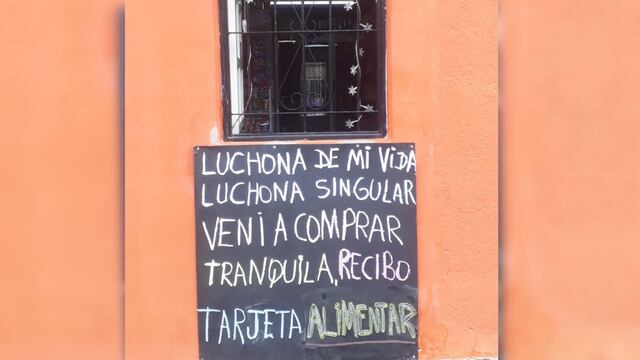 LUCHONA DE MI VIDA
LUCHONA SINGULAR
VENI A COMPRAR
TRANQUILA, RECIBO
TARJETA ALIMENTAR